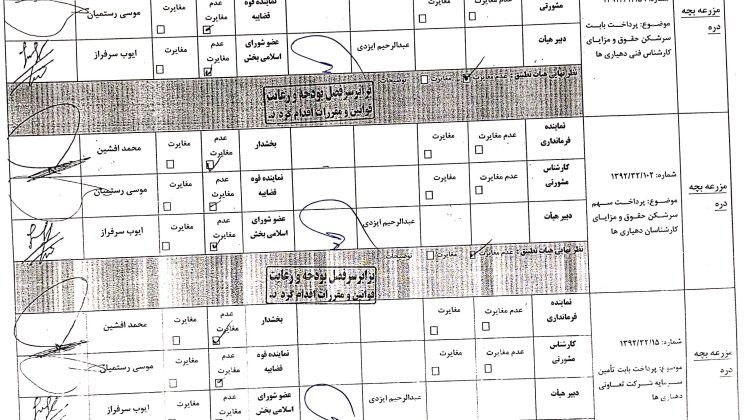 مزرعه بچه
دره
موضوع: پرداخت بابت
سرشکن حقوق و مزایای
کارشناس فنی دهیاری ها
مشورتی
دبیر هیأت
عدم مغایرت
مغایرت
عبدالرحیم ایزدی
نماینده قوه
قضاییه
عدم
مغایرت
مغایرت
موسی رستمیان
عضو شورای
اسلامی بخش
ایوب سرفراز
نظر نهایی هیأت تطبیق:
عدم مغایرت
مغایرت
توضیحات:
برابر سرفصل بودجه و رعایت
قوانین و مقررات اقدام گردد.
مزرعه بچه
دره
شماره: ۱۳۹۲/۳۲/۱۰۲
موضوع: پرداخت سهم
سرشکن حقوق و مزایای
کارشناسان دهیاری ها
نماینده
فرمانداری
عدم
مغایرت
مغایرت
بخشدار
عدم
مغایرت
مغایرت
محمد افشین
کارشناس
مشورتی
عدم مغایرت
مغایرت
نماینده قوه
قضاییه
عدم
مغایرت
مغایرت
موسی رستمیان
دبیر هیأت
عبدالرحیم ایزدی
عضو شورای
اسلامی بخش
ایوب سرفراز
نظر نهایی هیأت تطبیق:
عدم مغایرت
مغایرت
توضیحات:
برابر سرفصل بودجه و رعایت
قوانین و مقررات اقدام گردد.
مزرعه بچه
دره
شماره: ۱۳۹۲/۳۲/۱۵
موضوع: پرداخت بابت تأمین
سرمایه شرکت تعاونی
دهیاری ها
نماینده
فرمانداری
عدم مغایرت
مغایرت
بخشدار
عدم
مغایرت
مغایرت
محمد افشین
کارشناس
مشورتی
عدم مغایرت
مغایرت
نماینده قوه
قضاییه
عدم
مغایرت
مغایرت
موسی رستمیان
دبیر هیأت
عبدالرحیم ایزدی
عضو شورای
اسلامی بخش
عدم
مغایرت
مغایرت
ایوب سرفراز